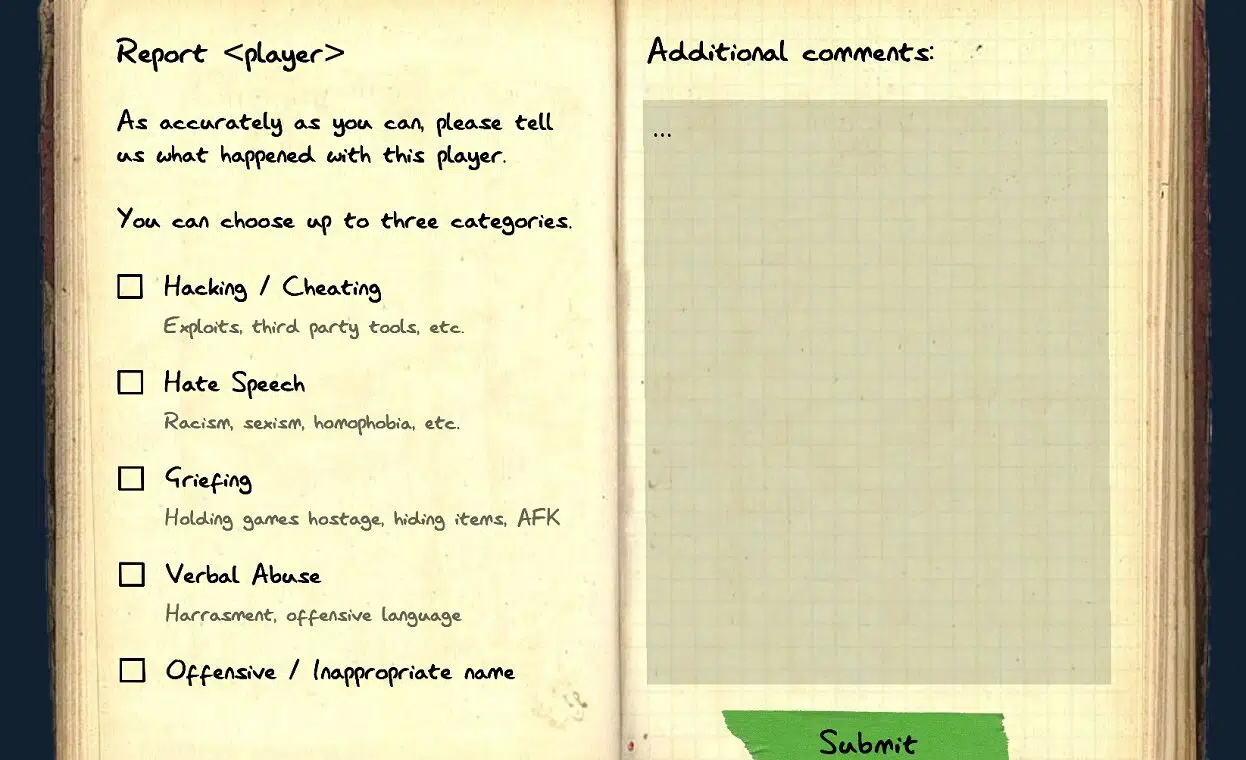 Report <player>
As accurately as you can, please tell
us what happened with this player.
You can choose up to three categories.
Hacking / Cheating
Exploits, third party tools, etc.
Hate Speech
Racism, sexism, homophobia, etc.
Griefing
Holding games hostage, hiding items, AFK
Verbal Abuse
Harrasment, offensive language
Offensive / Inappropriate name
Additional comments:
...
Submit